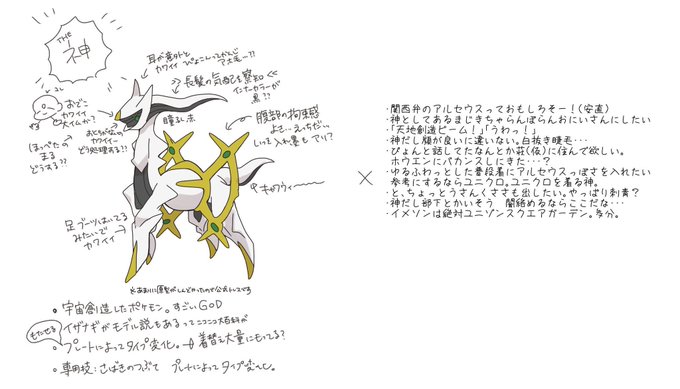 THE
神
耳が意外と
カワイイ
ぴょこんってかんじ
長髪の気配を察知<<
インナーカラーが
黒??
おでこ
カワイイ
瞳赤
腹部の拘束感
ほっぺたの
まる
どうする??
どう処理する??
足ブーツはいてる
みたいで
カワイイ
・宇宙創造したポケモン。すごいGOD
・イザナギがモデル説もあるってニコニコ大百科が
もたせる
・プレートによってタイプ変化。→着替え大量にもってる?
・専用技:さばきのつぶて プレートによってタイプ変化。
×
・関西弁のアルセウスっておもしろそー!(安直)
・神としてあるまじきちゃらんぽらんおにいさんにしたい
・「天地創造ビーム!」「うわっ!」
・神だし顔が良いに違いない。白抜き睫毛…
・ぴょんと話してたなんとか荘(仮)に住んで欲しい。
ホウエンにバカンスしにきた…?
・ゆるふわっとした普段着にアルセウスっぽさを入れたい
参考にするならユニクロ。ユニクロを着る神。
・と、ちょっとうさんくささも出したい。やっぱり刺青?
・神だし部下とかいそう 闇絡めるならここだな…
・イメソンは絶対ユニゾンスクエアガーデン。多分。